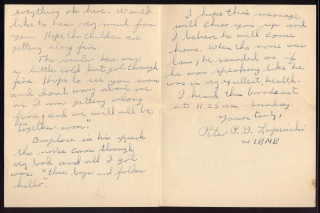 everything ok here. Would
like to hear very much from
you. Hope the children are
getting along fine.
The writer has
a little cold but got though
fine. Hope to see you soon
and dont worry about me
as I am getting along
fine, and we will all be
together soon."
Anyplace in his speech
the noise came though
very bad and all I got
was "three boys and
hello".
I hope this message
will cheer you up and
I believe he will come
home. When the noise was
low, he sounded as if
he was speaking like he
was in excellent health.
I heard this broadcast
at 11:25 am. Sunday.
Yours truly,
Pete P. G.
W7BMB